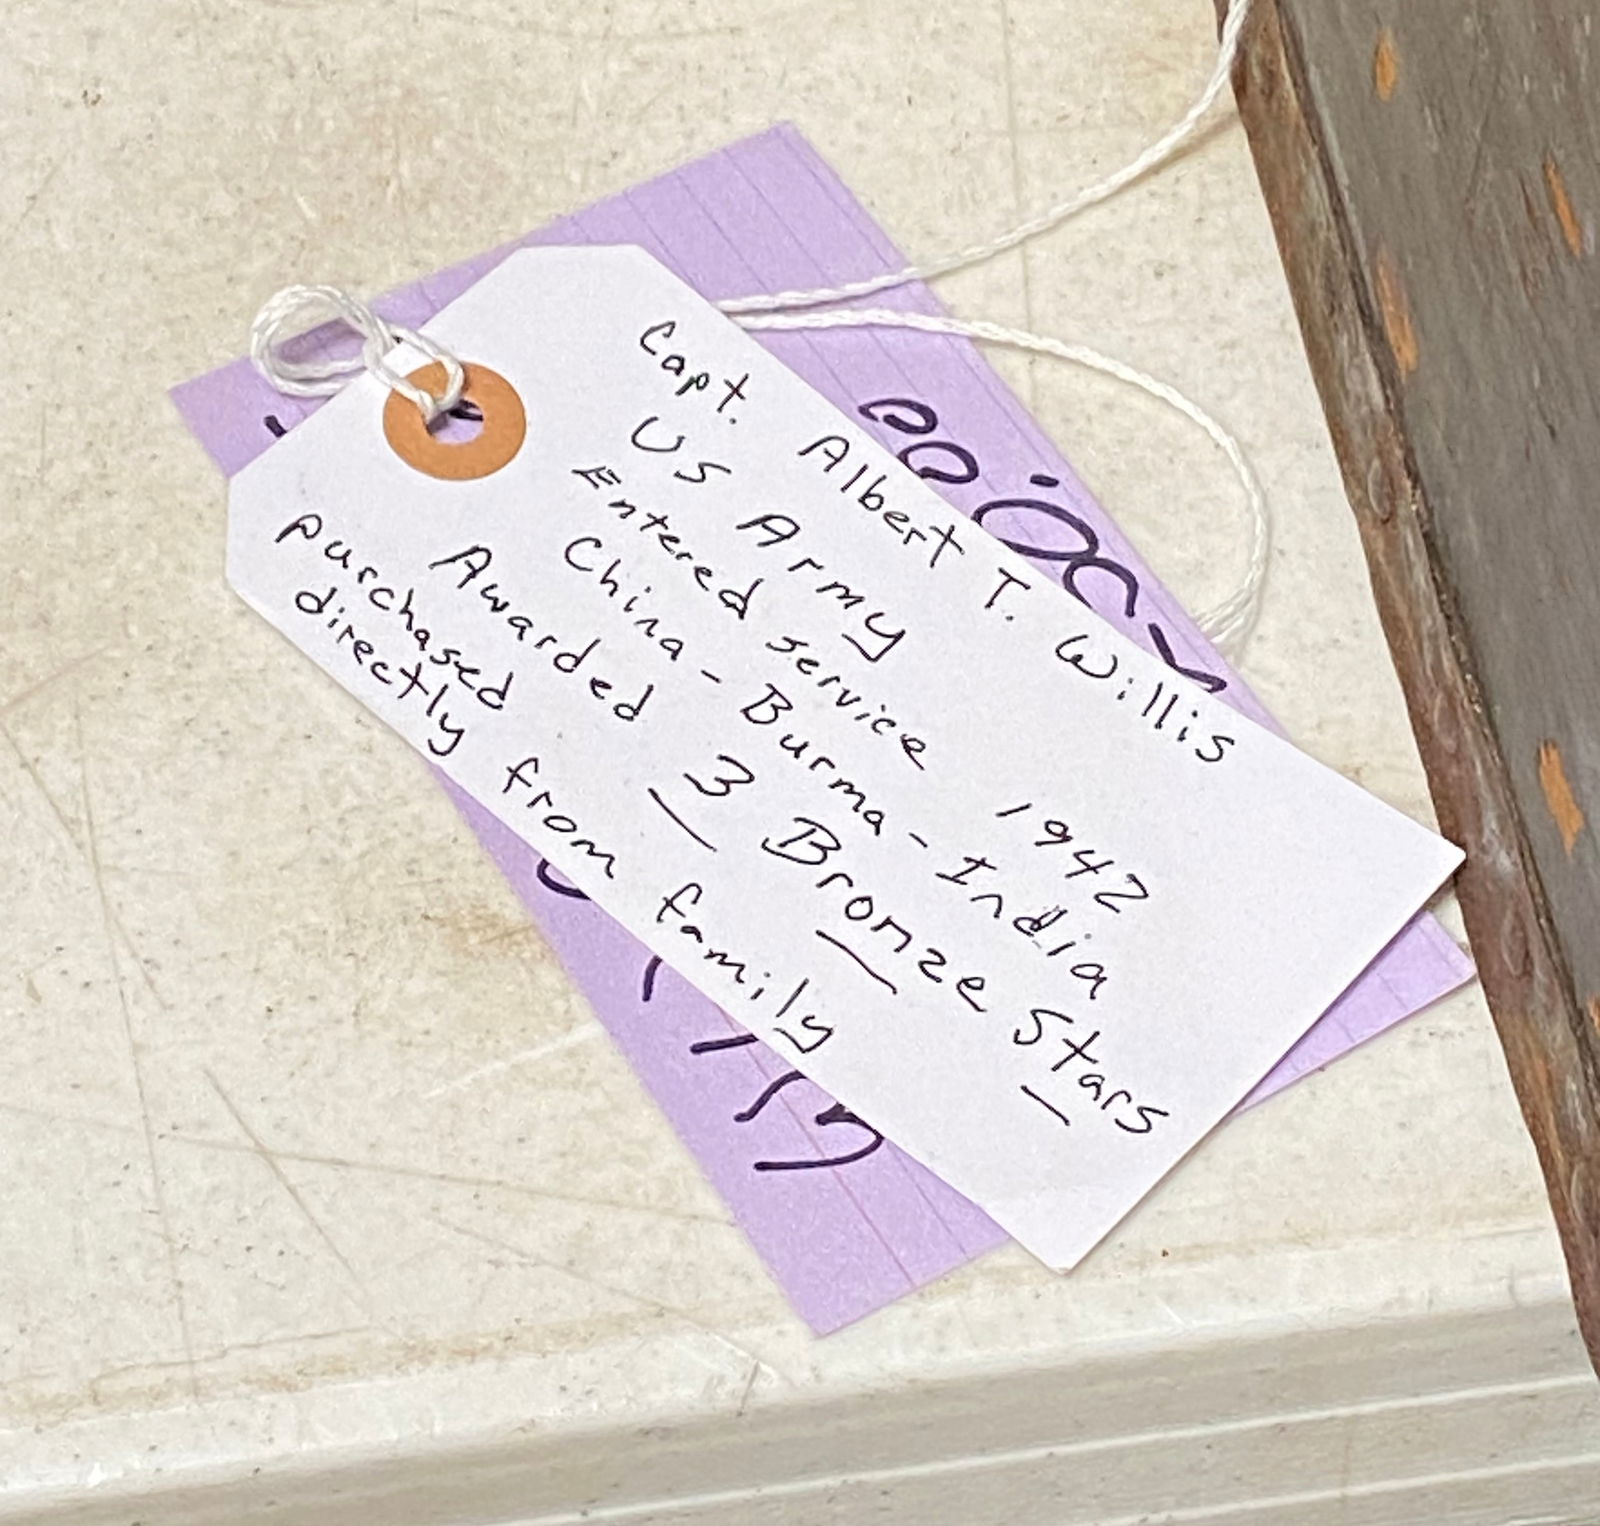 Capt. Albert T. Willis
US Army
Entered service 1942
China - Burma - India
Awarded 3 Bronze Stars
purchased
directly from family